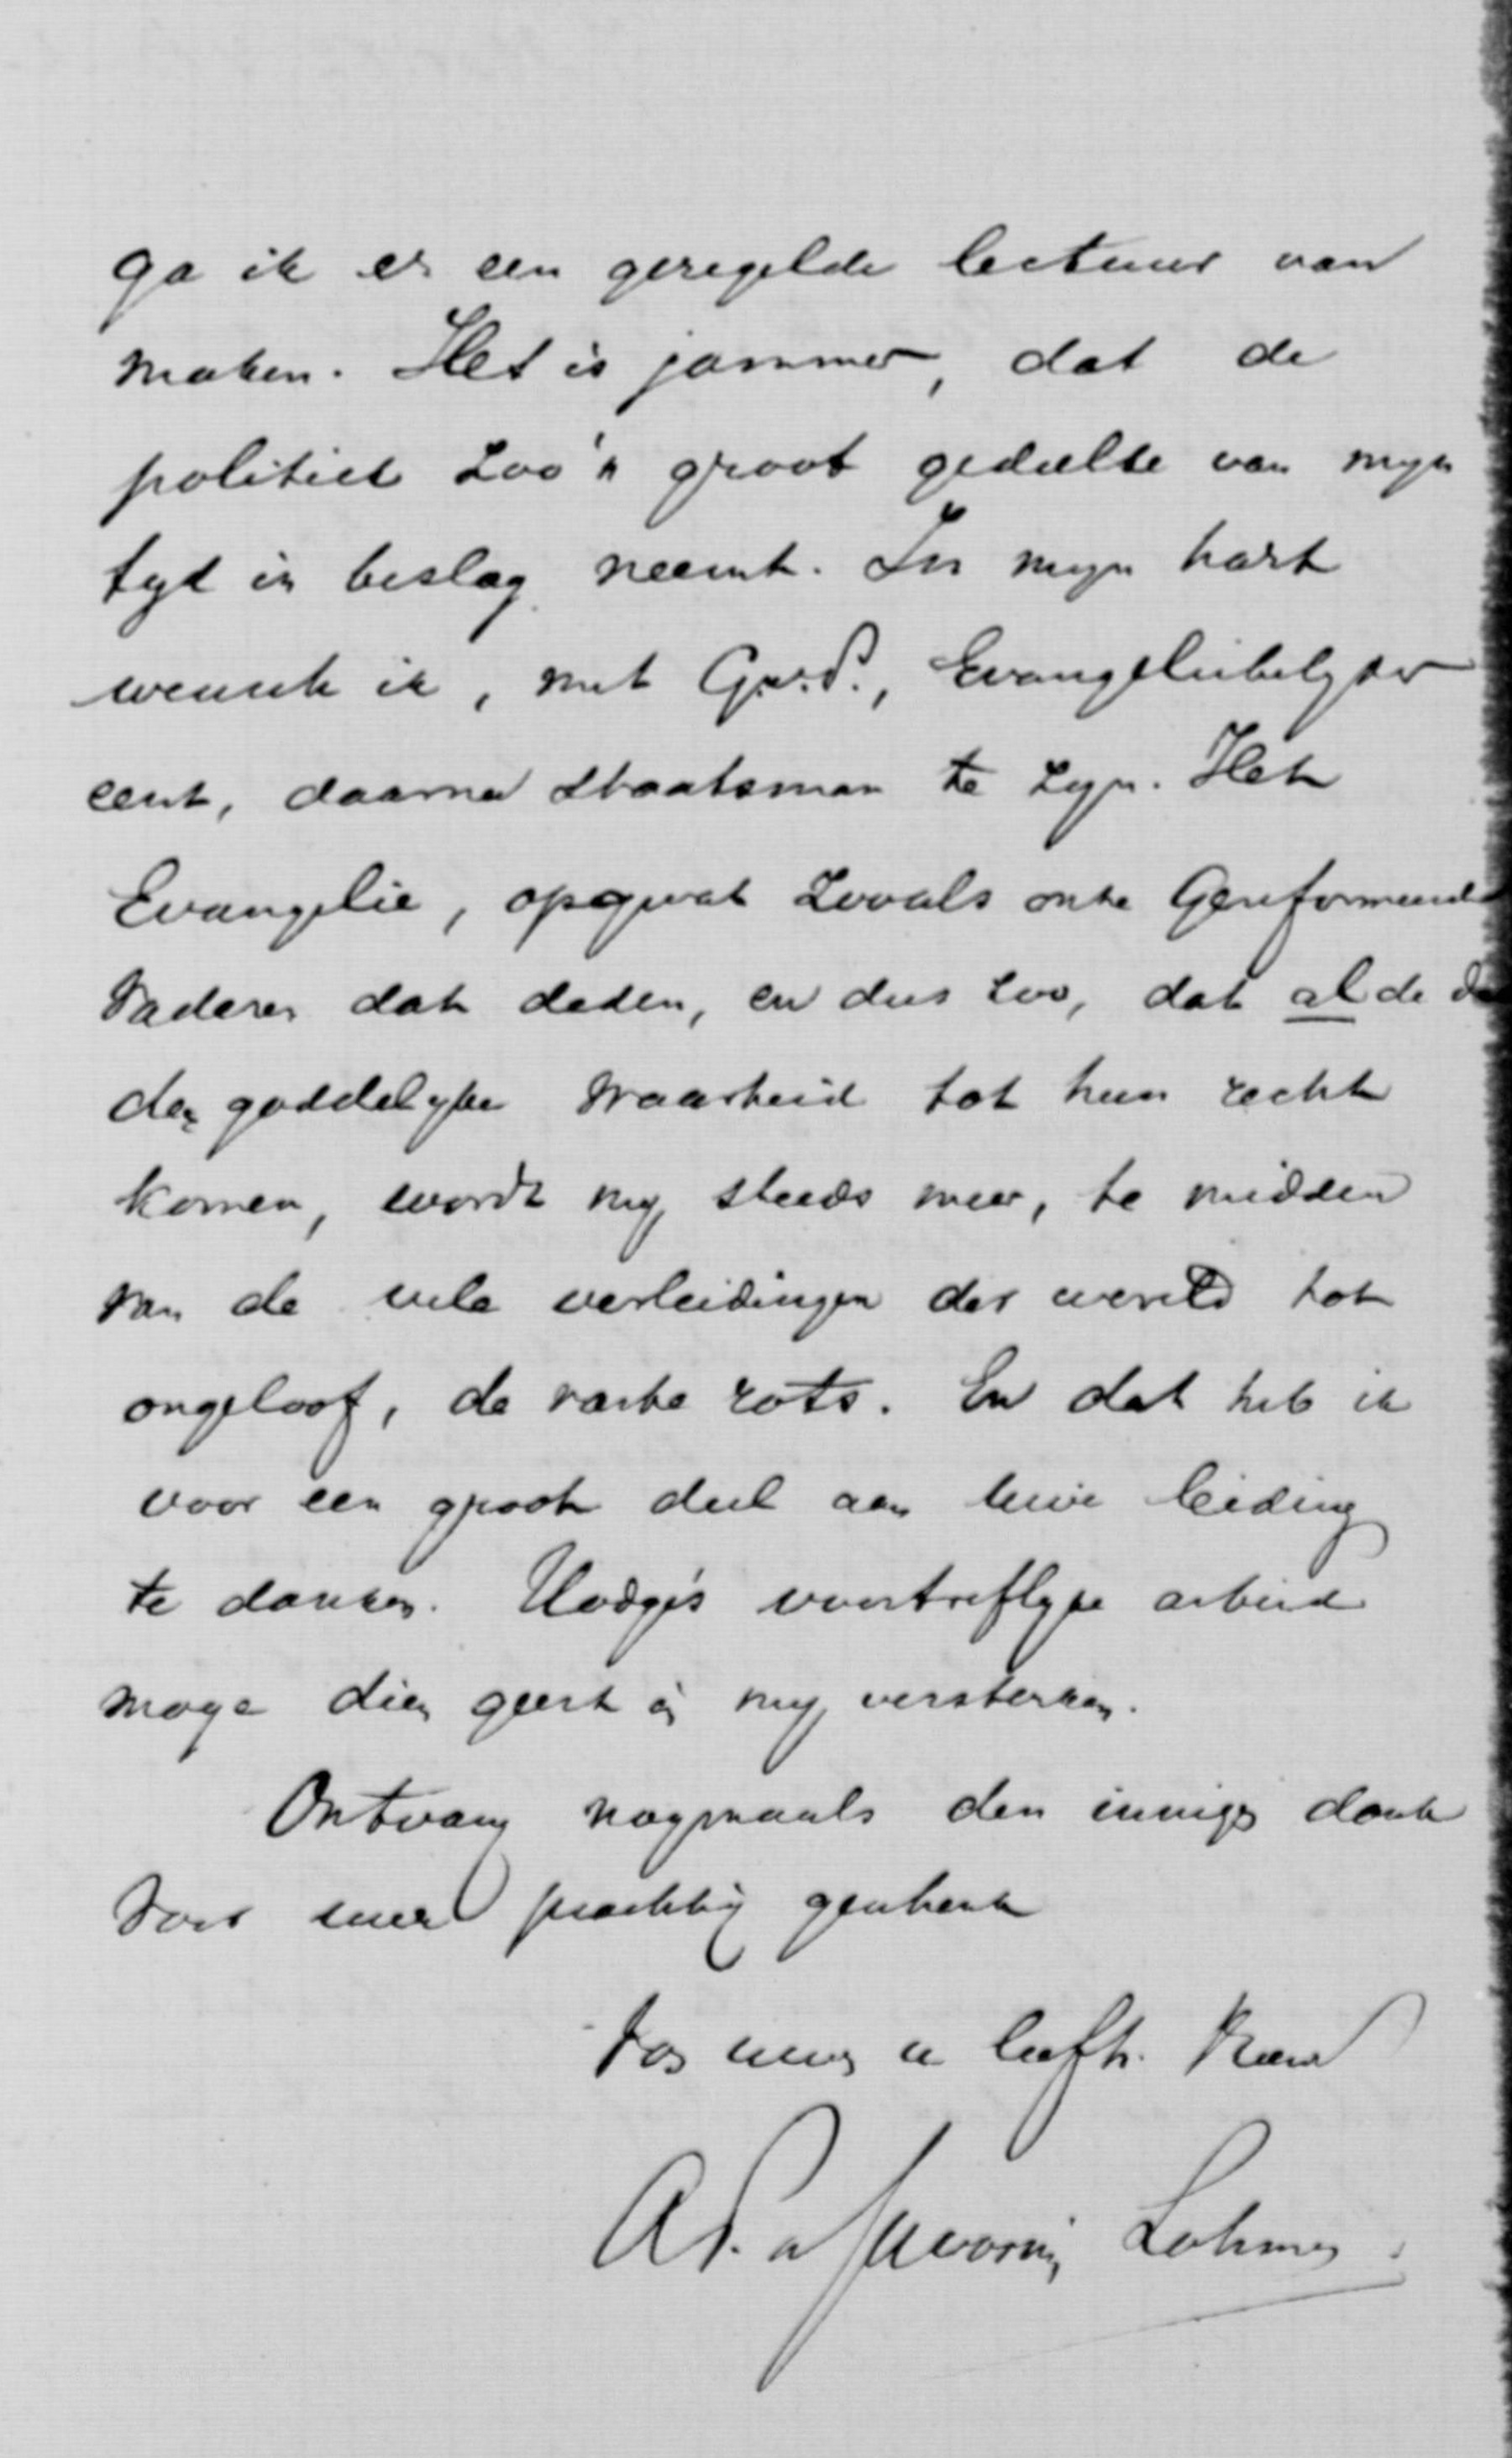 ga ik er een geregelde lectuur van
maken. Het is jammer, dat de
politiek zoo'n groot gedeelte van myn
tyd in beslag neemt. In myn hart
wensch ik, met G.v.P., Evangeliebelyder
eerst, daarna staatsman te zyn. Het
Evangelie, opgevat zooals onze Gereformeerde
Vaderen dat deden, en dus zoo, dat al de
der goddelyke waarheid tot hun recht
komen, wordt my steeds meer, te midden
van de vele verleidingen der wereld tot
ongeloof, de vaste rots. En dat heb ik
voor een groot deel aan uwe leiding
te danken. Hodge's voortreflyke arbeid
moge dien geest in my versterken.
Ontvang nogmaals den innigen dank
voor uwer prachtig geschenk
van uwen u liefh. Vriend
A F. de Savornin Lohman